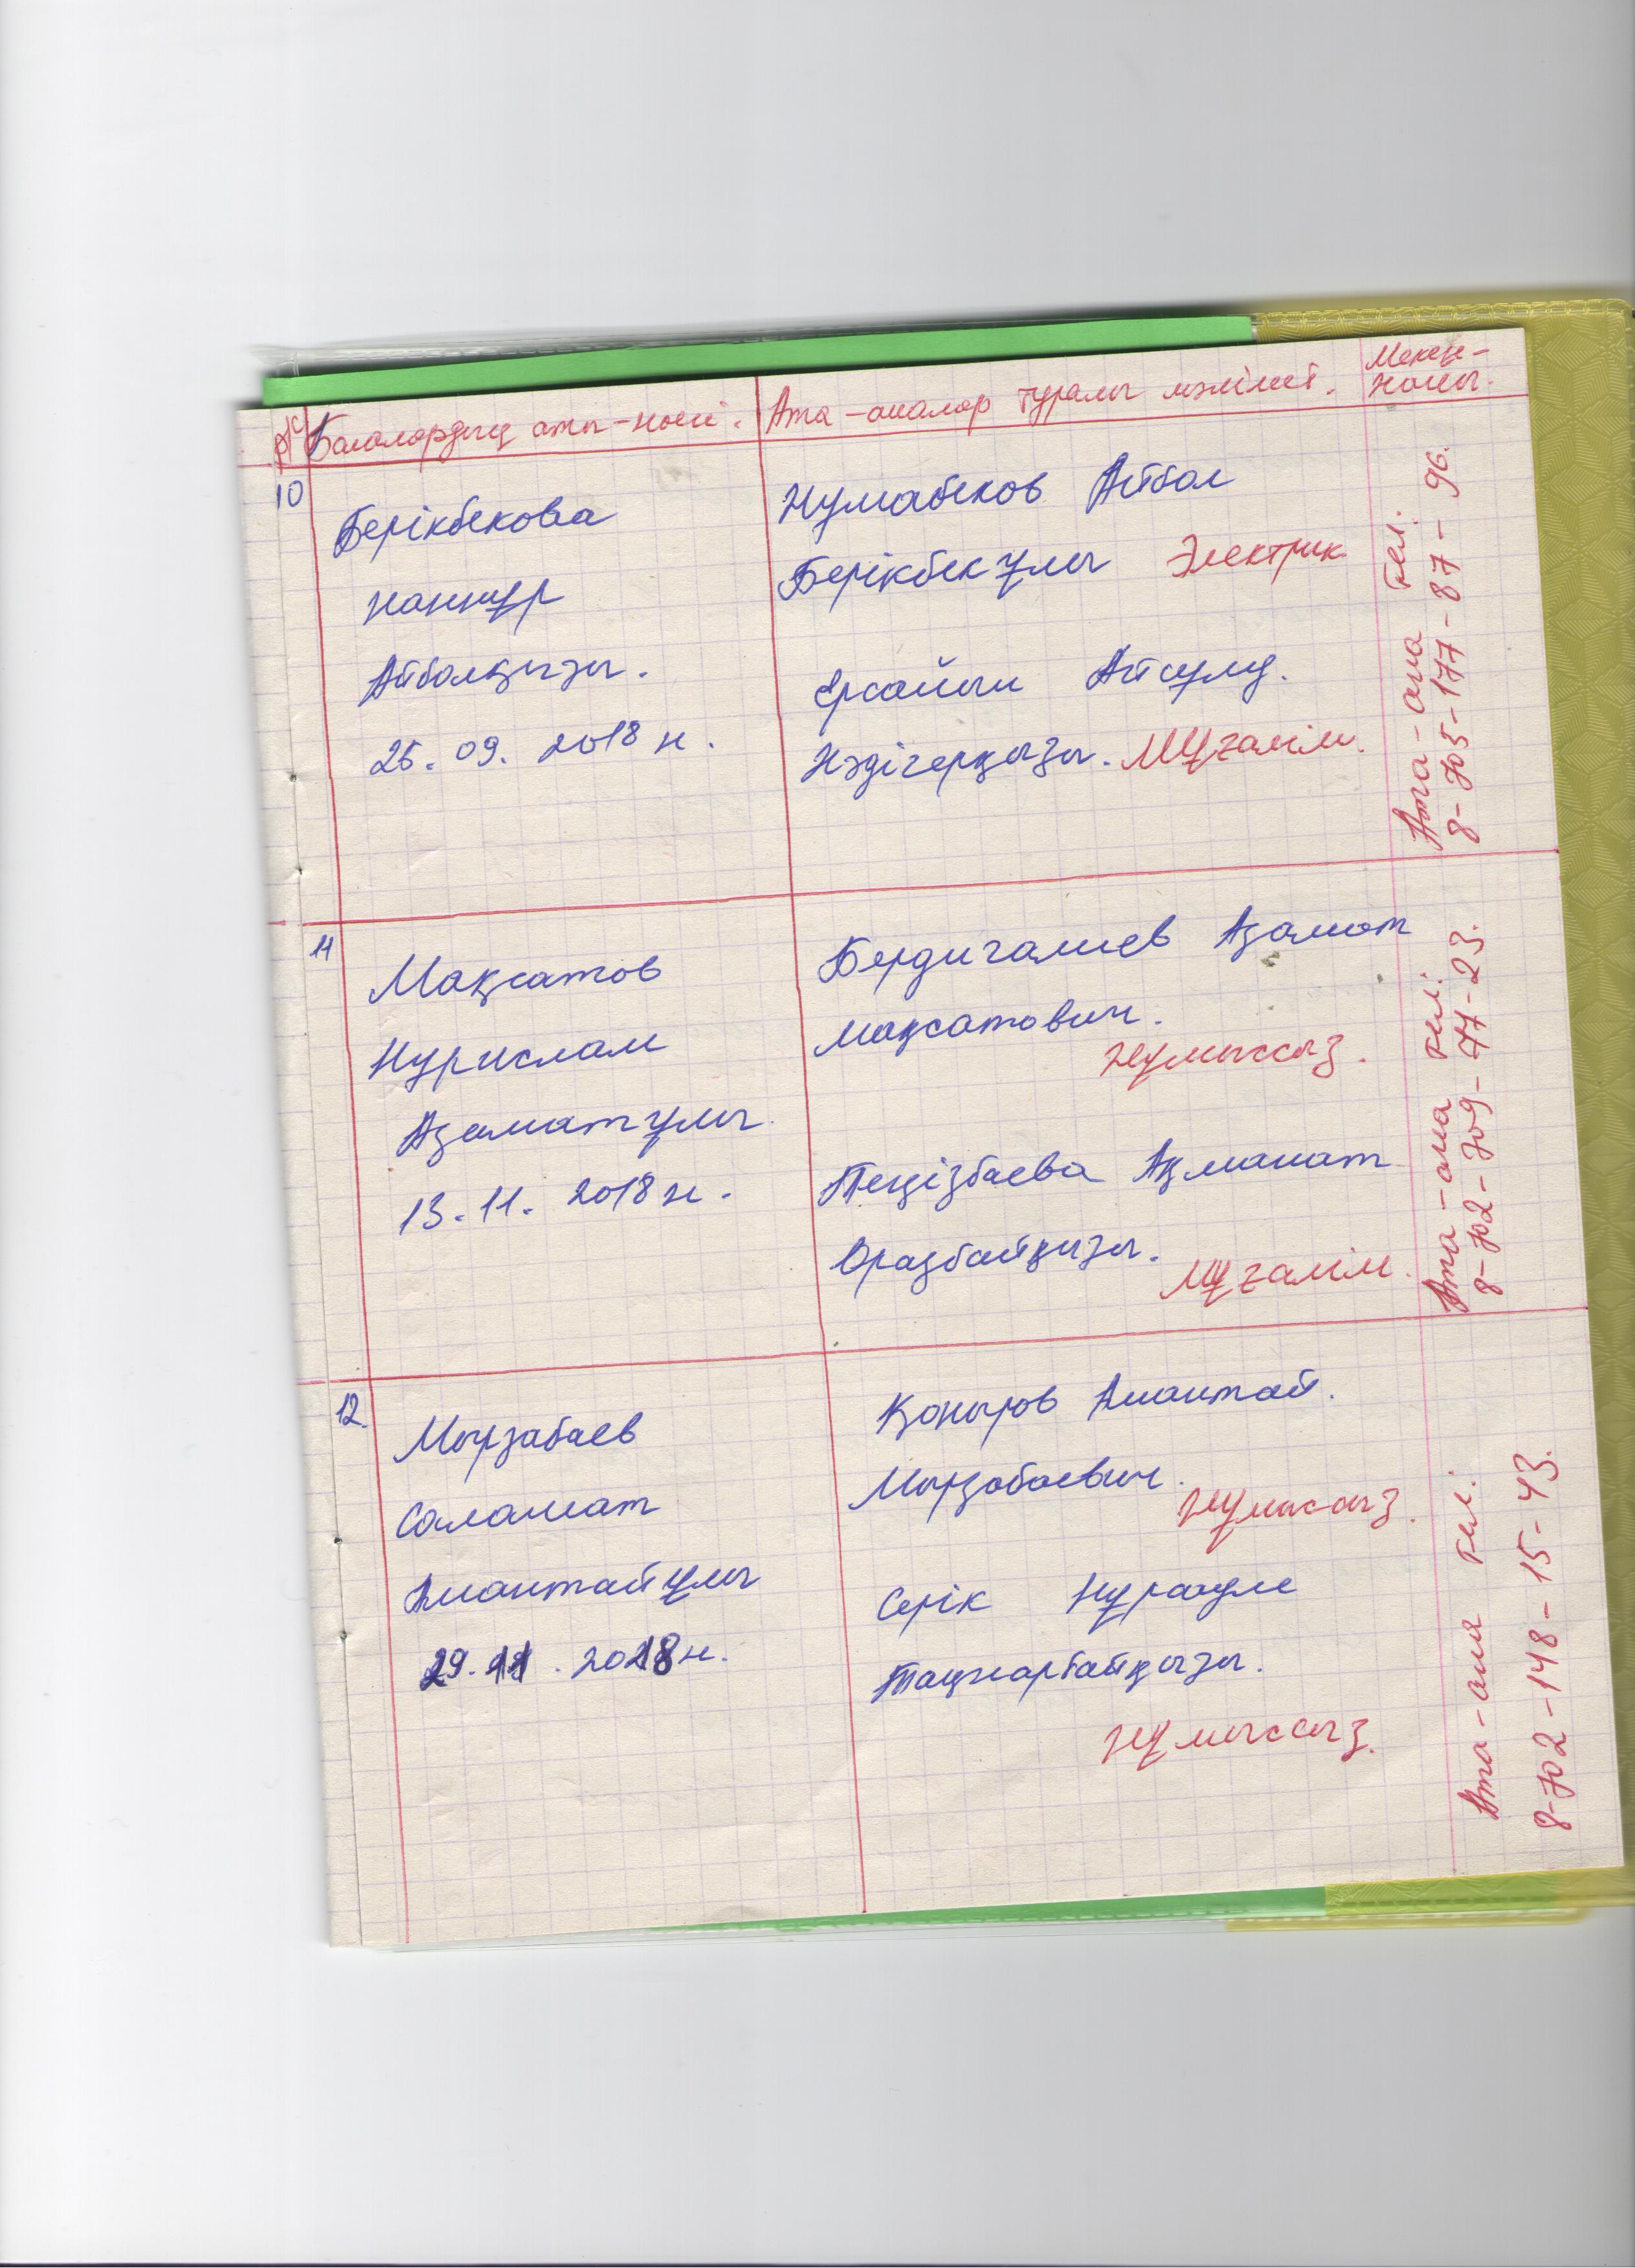 р/с Балалардың аты-жөні. Ата-аналар туралы мәлімет. Мекен-
жайы.
10
Берікбекова
Жаннұр
Айболқызы.
25.09.2018 ж.
Жумабеков Айбол
Берікбекұлы Электрик
Ерсайын Айсұлу.
Нәдігерқызы. Мұғалім.
Ата-ана тел.
8-705-177-87-96.
11
Мақсатов
Нурислам
Азаматұлы.
13.11.2018 ж.
Бердигалиев Азамат
Мақсатович.
Жұмыссыз.
Теңізбаева Ақманат
Оразбайқызы.
Мұғалім.
Ата-ана тел.
8-702-709-77-23.
12.
Мырзабаев
Саламат
Амантайұлы
29.11.2018 ж.
Қоңыров Амантай.
Мырзабаевич.
Жұмысыз.
Серік Нұрсәуле
Таңжарбайқызы.
Жұмыссыз.
Ата-ана тел.
8-702-148-15-43.